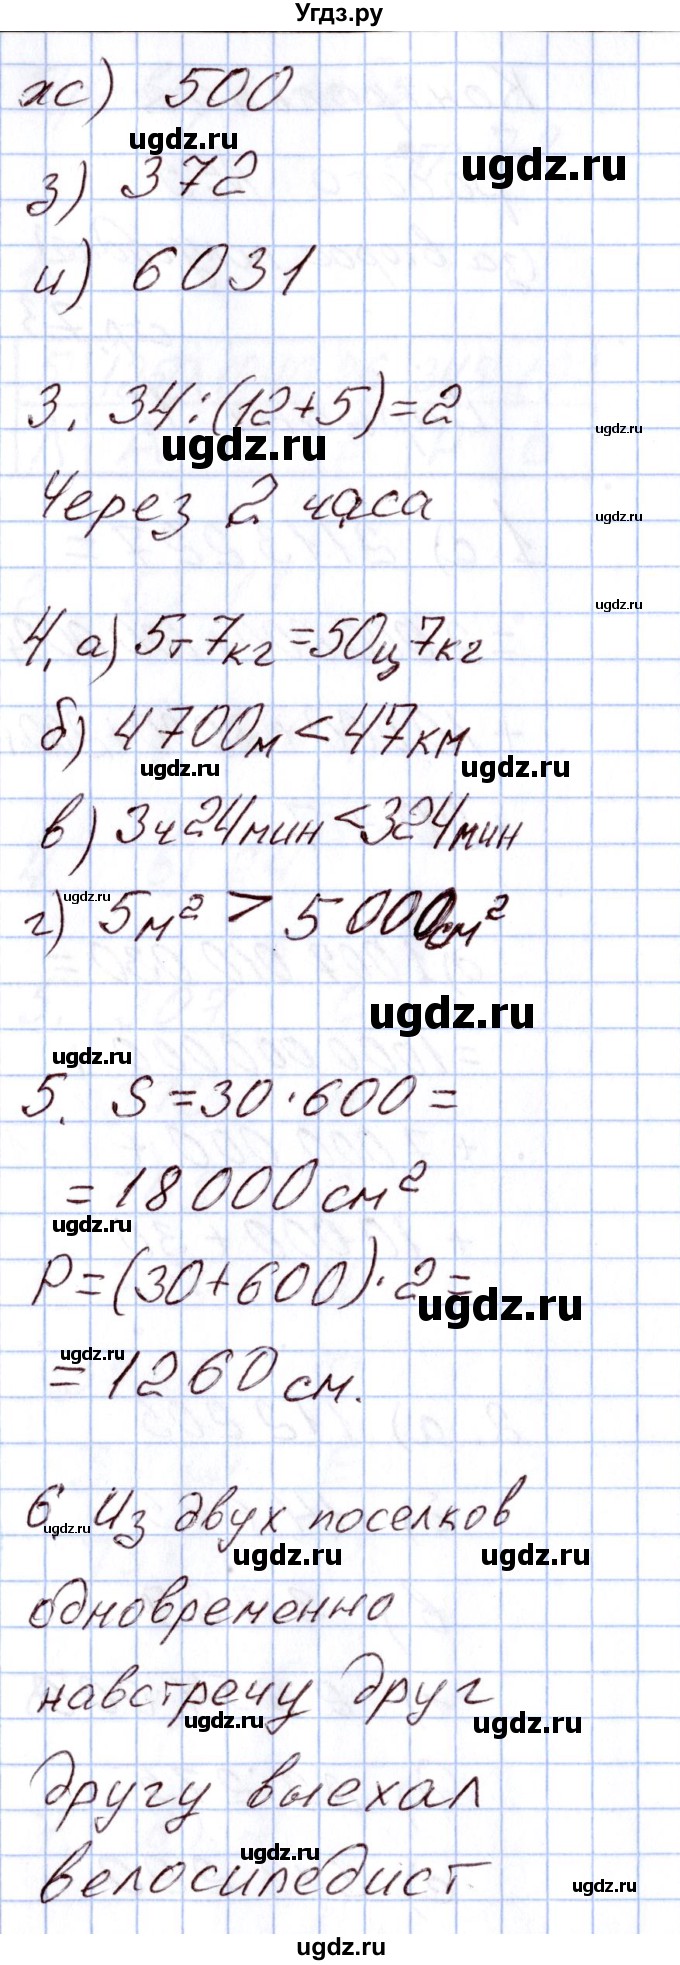 Угдз.ру
ж) 500
ugdz.ru
ugdz.ru
з) 372
и) 6031
3. 34:(12+5)=2
ugdz.ru
ugdz.ru
Через 2 часа
ugdz.ru
ugdz.ru
4. а) 5т7кг=50ц7кг
б) 4700м<47км
ugdz.ru
ugdz.ru
в) 3ч24мин<324мин
ugdz.ru
г) 5м²>5000см²
ugdz.ru
ugdz.ru
5. S=30·600=
=18000см²
ugdz.ru
P=(30+600)·2=
ugdz.ru
ugdz.ru
=1260см.
6. Из двух поселков
ugdz.ru
ugdz.ru
ugdz.ru
одновременно
навстречу друг
ugdz.ru
ugdz.ru
другу выехал
ugdz.ru
велосипедист
ugdz.ru
ugdz.ru